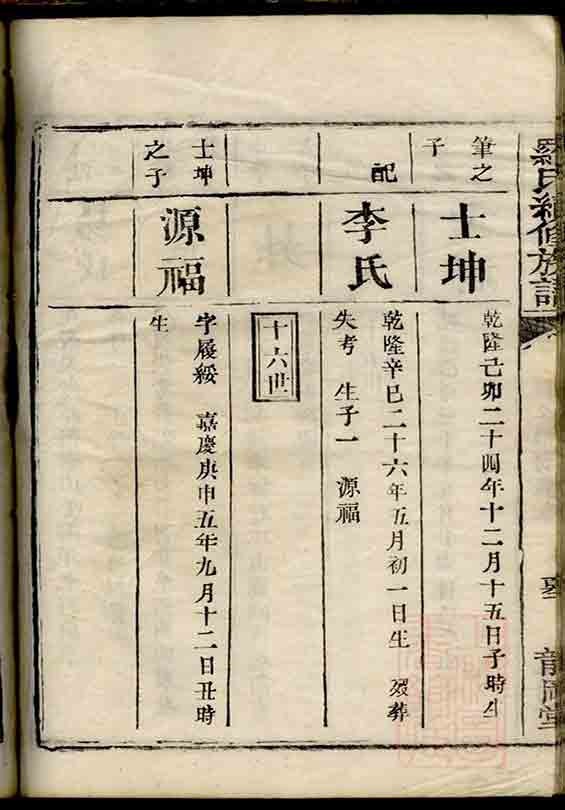 羅氏續修族譜
龍岡堂
筆之
子
士坤
乾隆己卯二十四年十二月十五日子時生
配
李氏
乾隆辛巳二十六年五月初一日生 歿葬
失考 生子一 源福
十六世
士坤
之子
源福
字履綏 嘉慶庚申五年九月十二日丑時
生